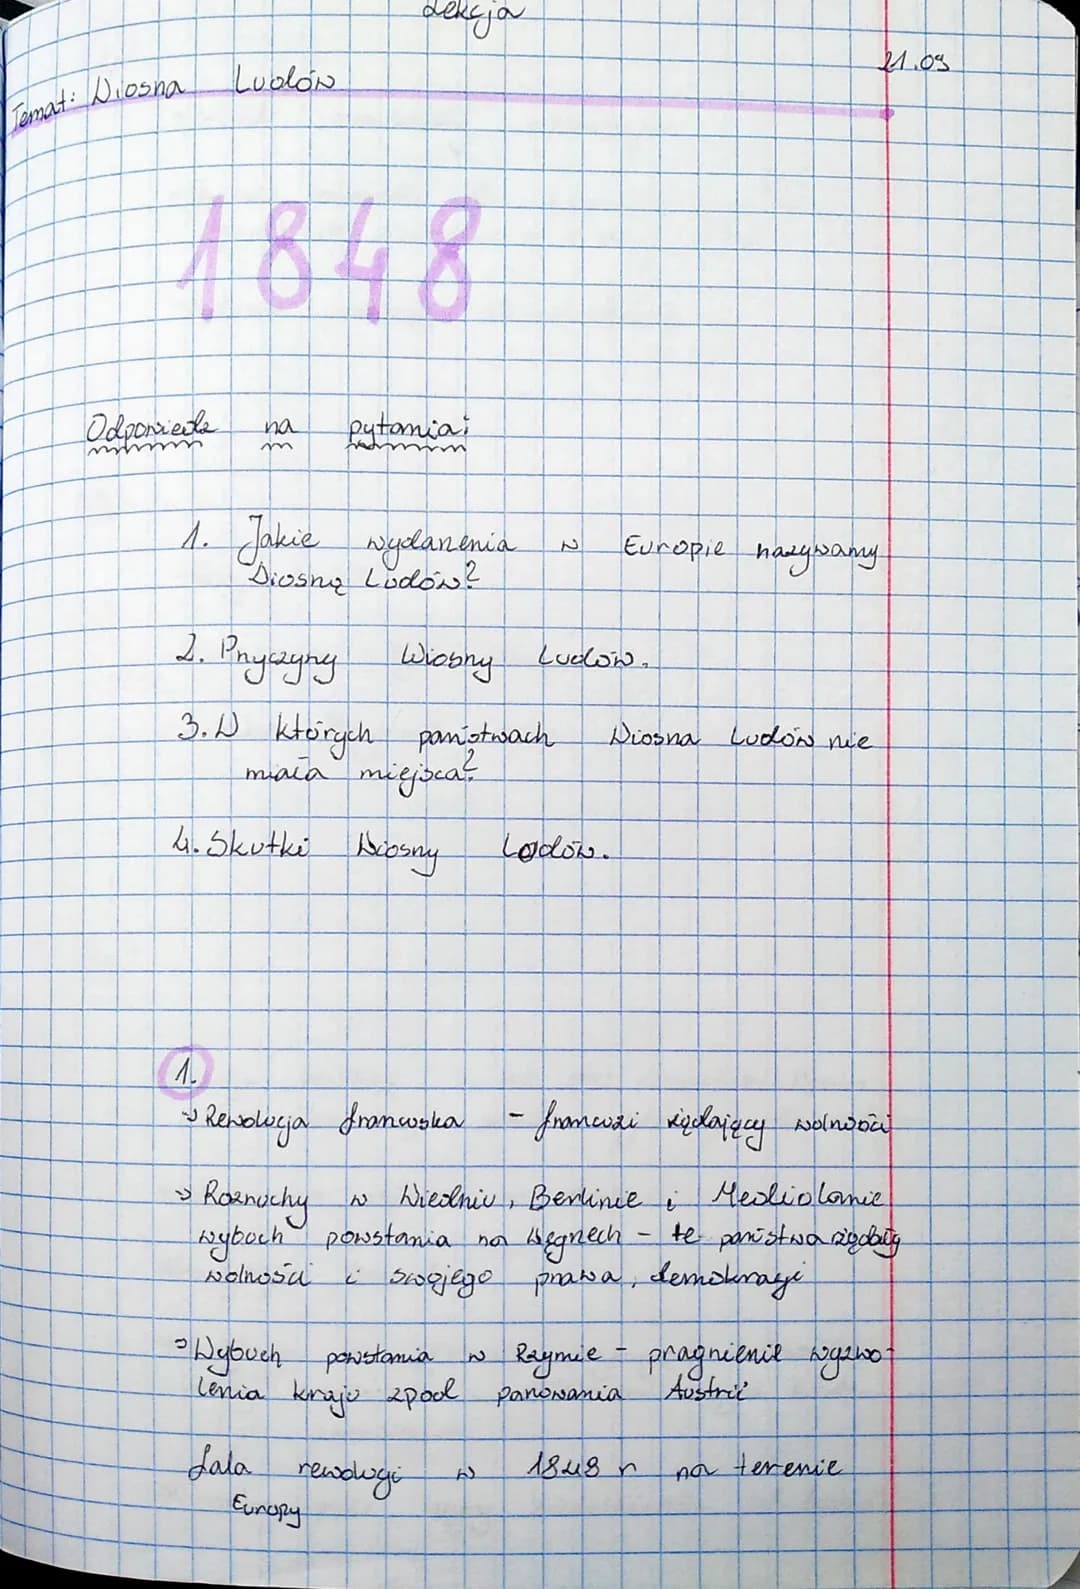 Lekcja
21.09
Temat: Wiosna Ludów
1848
Odpowiedz na pytania:
1. Jakie wydarzenia w Europie nazywamy
Wiosną Ludów?
2. Przyczyny Wiosny Ludów.
3. W których państwach Wiosna Ludów nie
miała miejsca?
4. Skutki Wiosny Ludów.
1.
→ Rewolucja francuska - francuzi żądający wolności
→ Rozruchy w Wiedniu, Berlinie i Mediolanie
wybuch powstania na Węgrzech - te państwa żądały
wolności i swojego prawa, demokracji
→ Wybuch powstania w Rzymie - pragnienie wyzwo-
lenia kraju zpod panowania Austrii
fala rewolucji w 1848 r na terenie
Europy